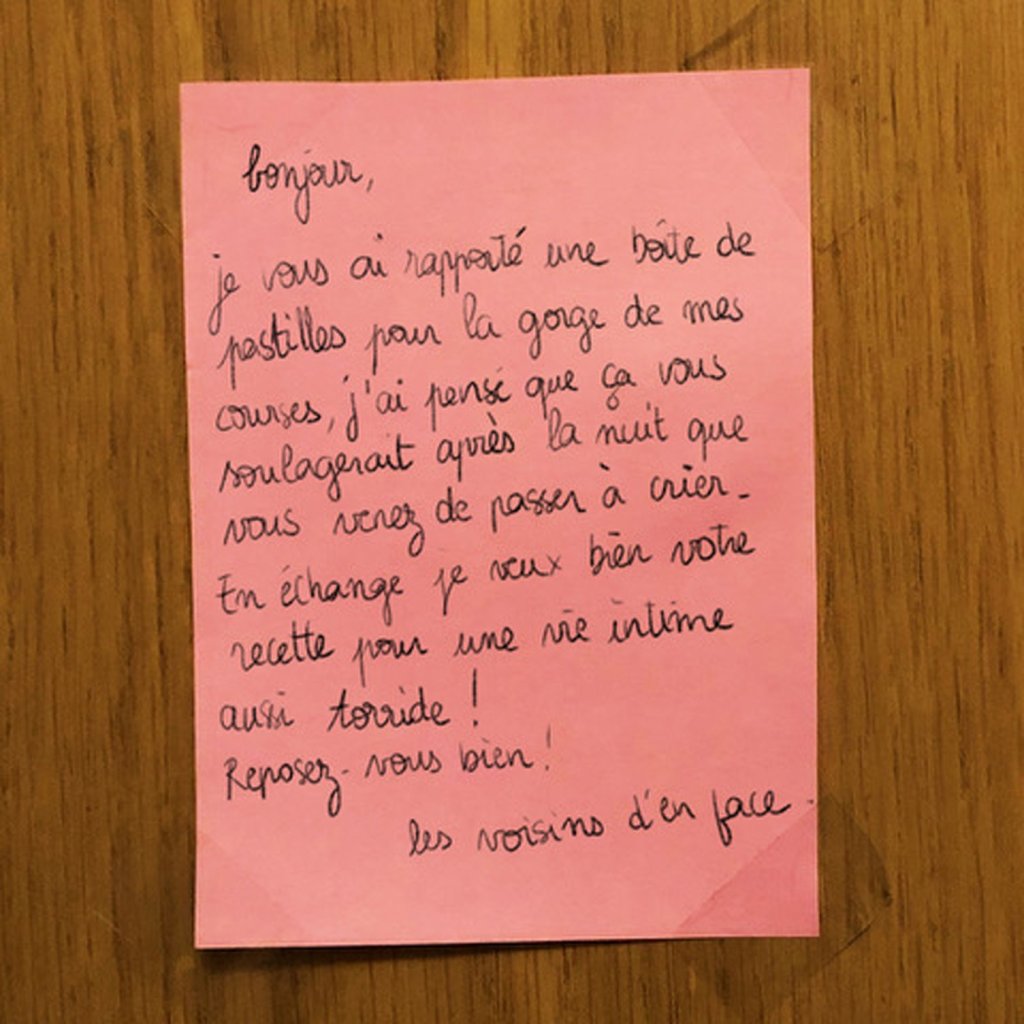 bonjour,
je vous ai rapporté une boîte de
pastilles pour la gorge de mes
courses, j'ai pensé que ça vous
soulagerait après la nuit que
vous venez de passer à crier.
En échange je veux bien votre
recette pour une vie intime
aussi torride !
Reposez-vous bien !
les voisins d'en face.